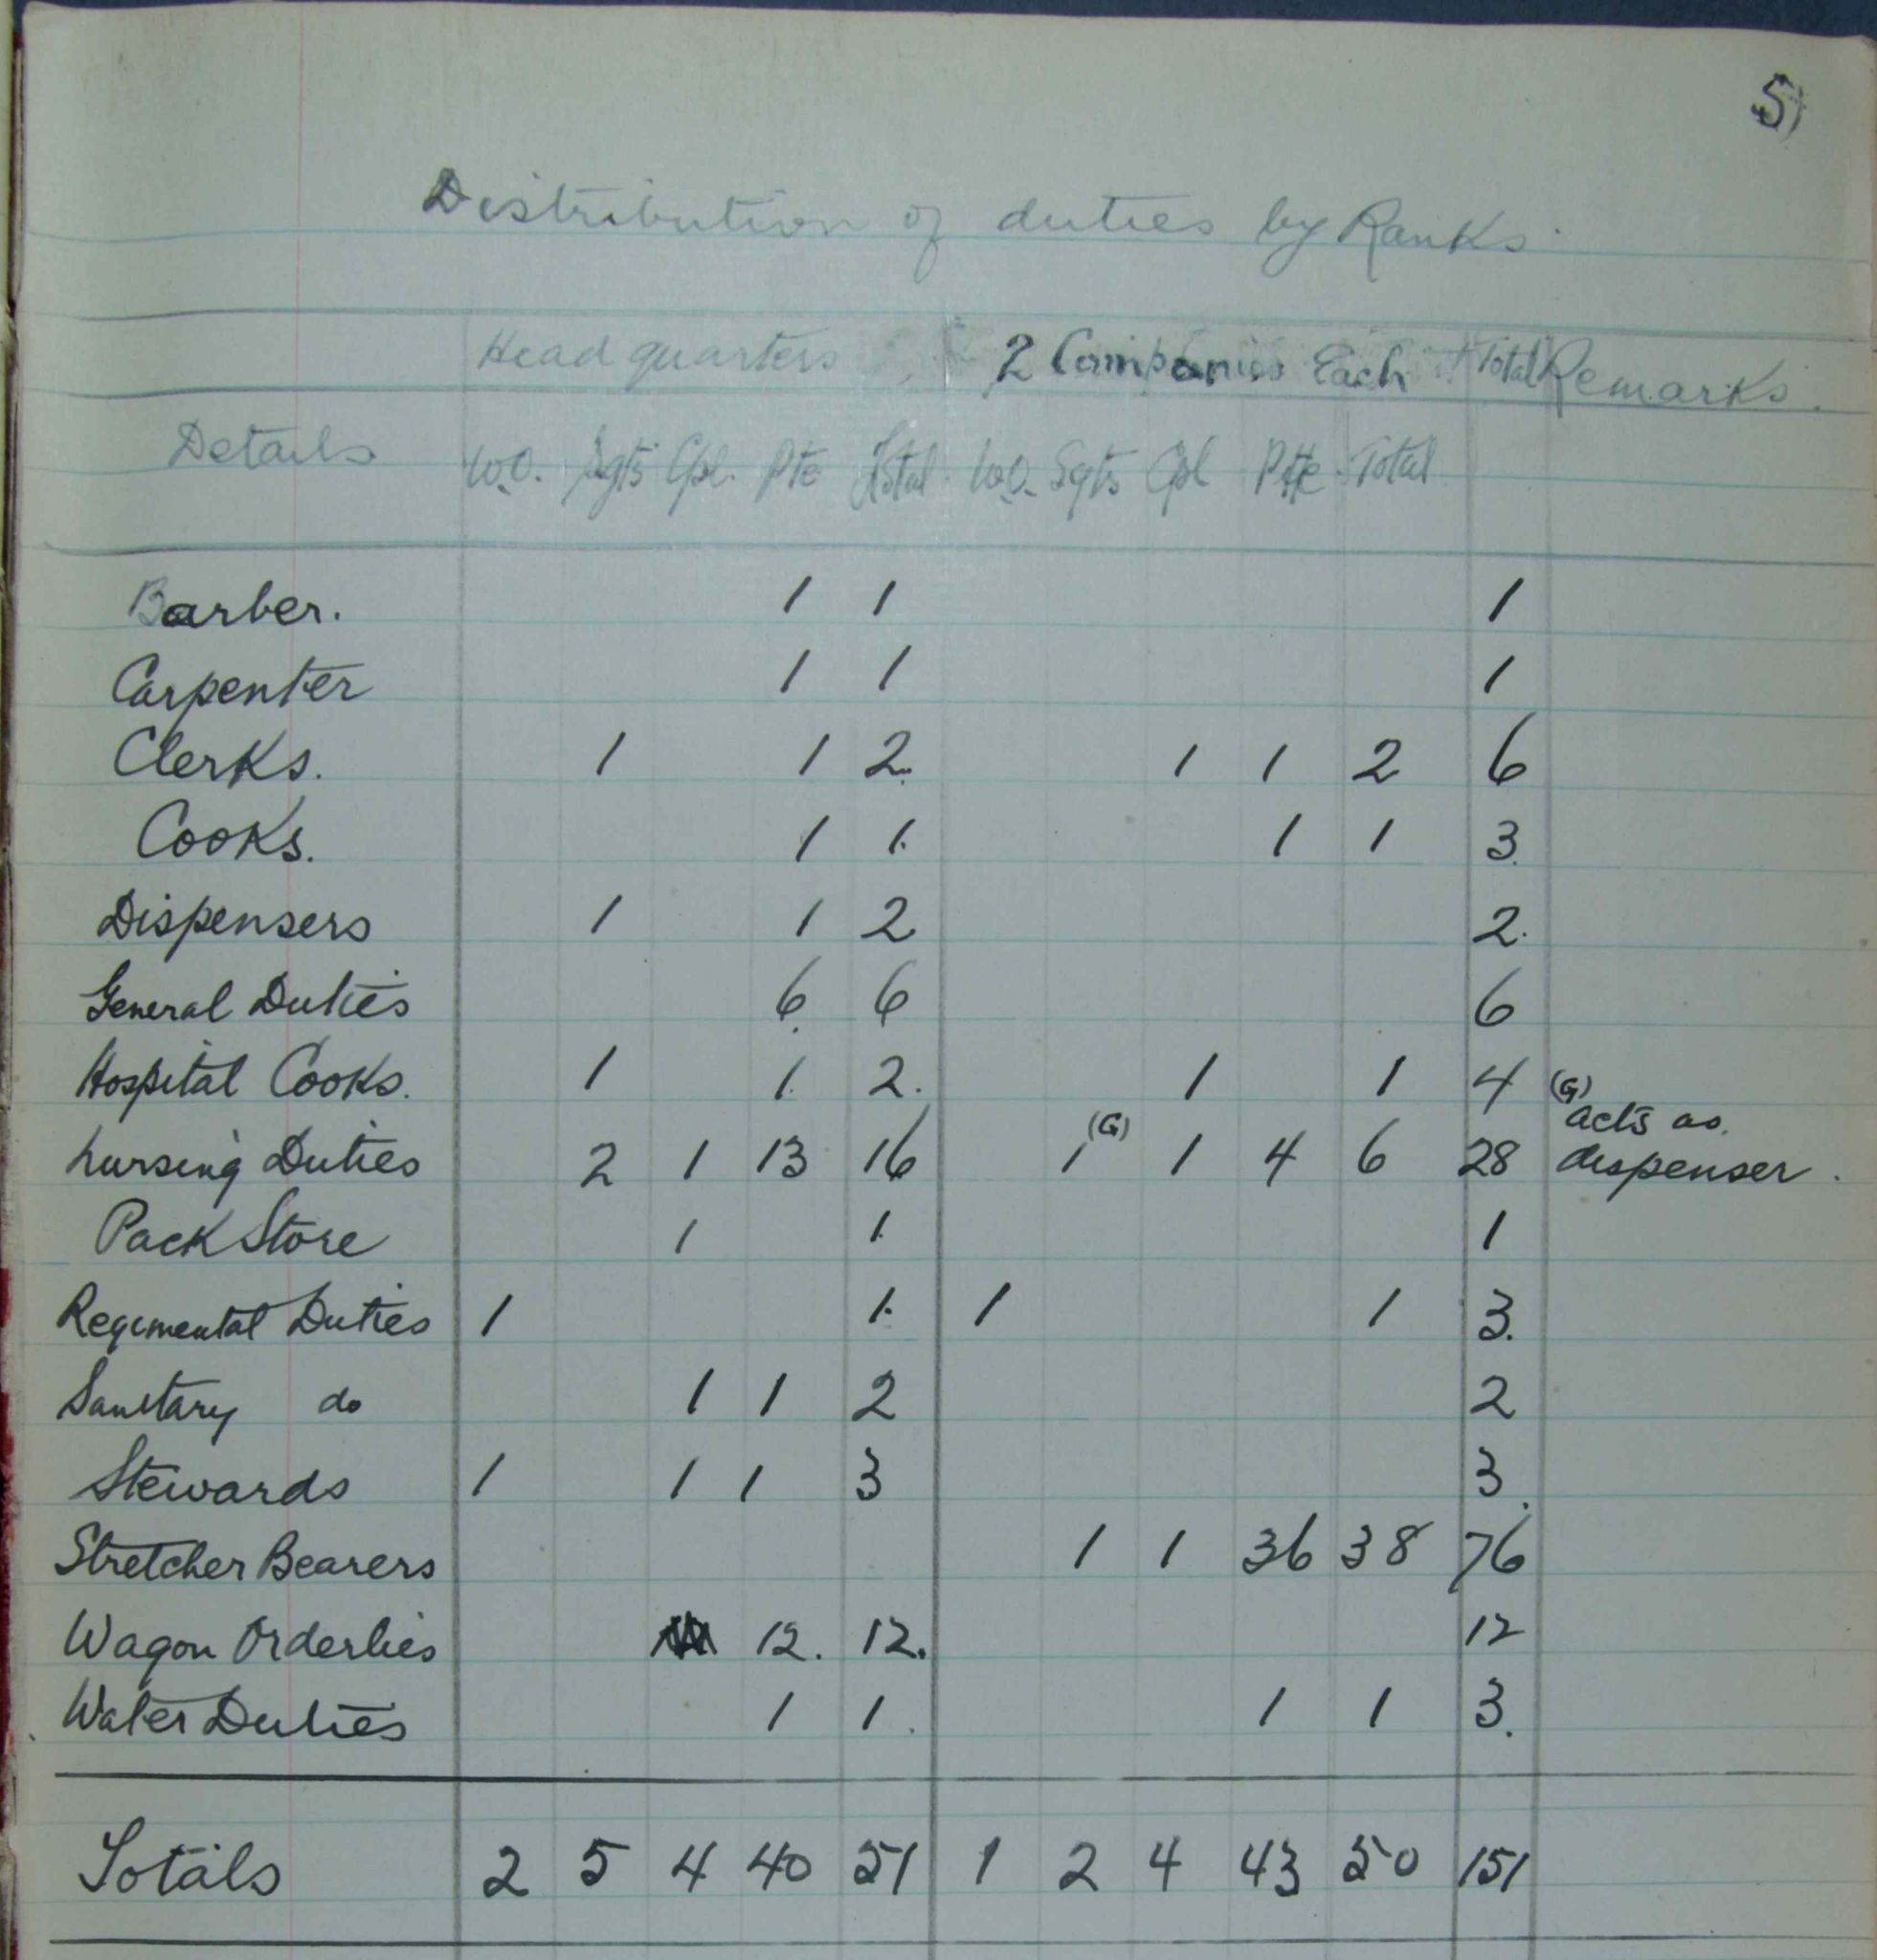 5)
Distribution of duties by Ranks.
Head quarters 2 Companies Each Total Remarks.
Details W.O. Sgts Cpl. Pte Total W.O. Sgts Cpl Pte Total
Barber. 1 1 1
Carpenter 1 1 1
Clerks. 1 1 2 1 1 2 6
Cooks. 1 1 1 1 3
Dispensers 1 1 2 2
General Duties 6 6 6
Hospital Cooks. 1 1 2. 1 1 4 (G)
acts as
Nursing Duties 2 1 13 16 1 (G) 1 4 6 28 dispenser.
Pack Store 1 1 1
Regimental Duties 1 1 1 1 3.
Sanitary do 1 1 2 2
Stewards 1 1 1 3 3.
Stretcher Bearers 1 1 36 38 76
Wagon Orderlies 12. 12. 12
Water Duties 1 1. 1 1 3.
Totals 2 5 4 40 51 1 2 4 43 50 151